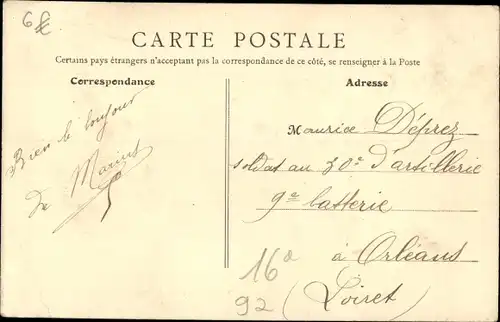 6€
CARTE POSTALE
Certains pays étrangers n'acceptant pas la correspondance de ce côté, se renseigner à la Poste
Correspondance
Bien le bonjour
de Marius
Adresse
Maurice Déprez
soldat au 30e d'artillerie
9e batterie
à Orléans
(Loiret)
16d
92